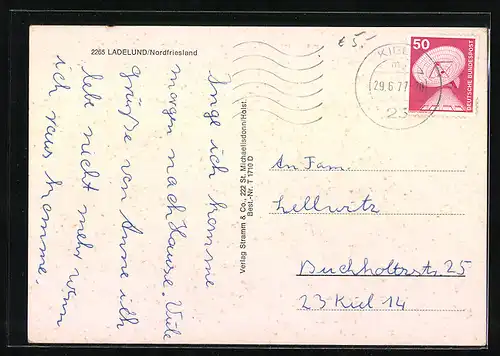 2265 LADELUND/Nordfriesland
€ 5.-
KIEL
29.6.77
23
50
DEUTSCHE BUNDESPOST
Inge ich komme
morgen nach Hause. Viele
grüße von Anne ich
lebe nicht mehr wenn
ich raus komme.
Verlag Stramm & Co., 222 St. Michaelisdonn/Holst.
Best.-Nr. T 1710 D
An Fam.
Lellwitz
Buchholtzstr. 25
23 Kiel 14